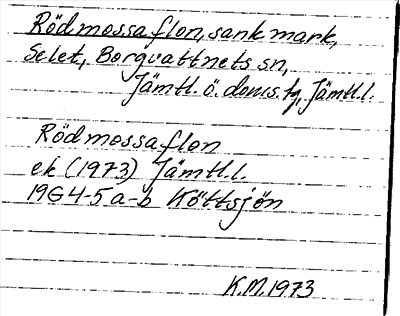 Rödmossaflon, sank mark,
Selet, Borgvattnets sn,
Jämtl. ö. doms. tg, Jämtl. l.
Rödmossaflon
ek (1973) Jämtl. l.
19G4-5a-b Köttsjön
K.M. 1973